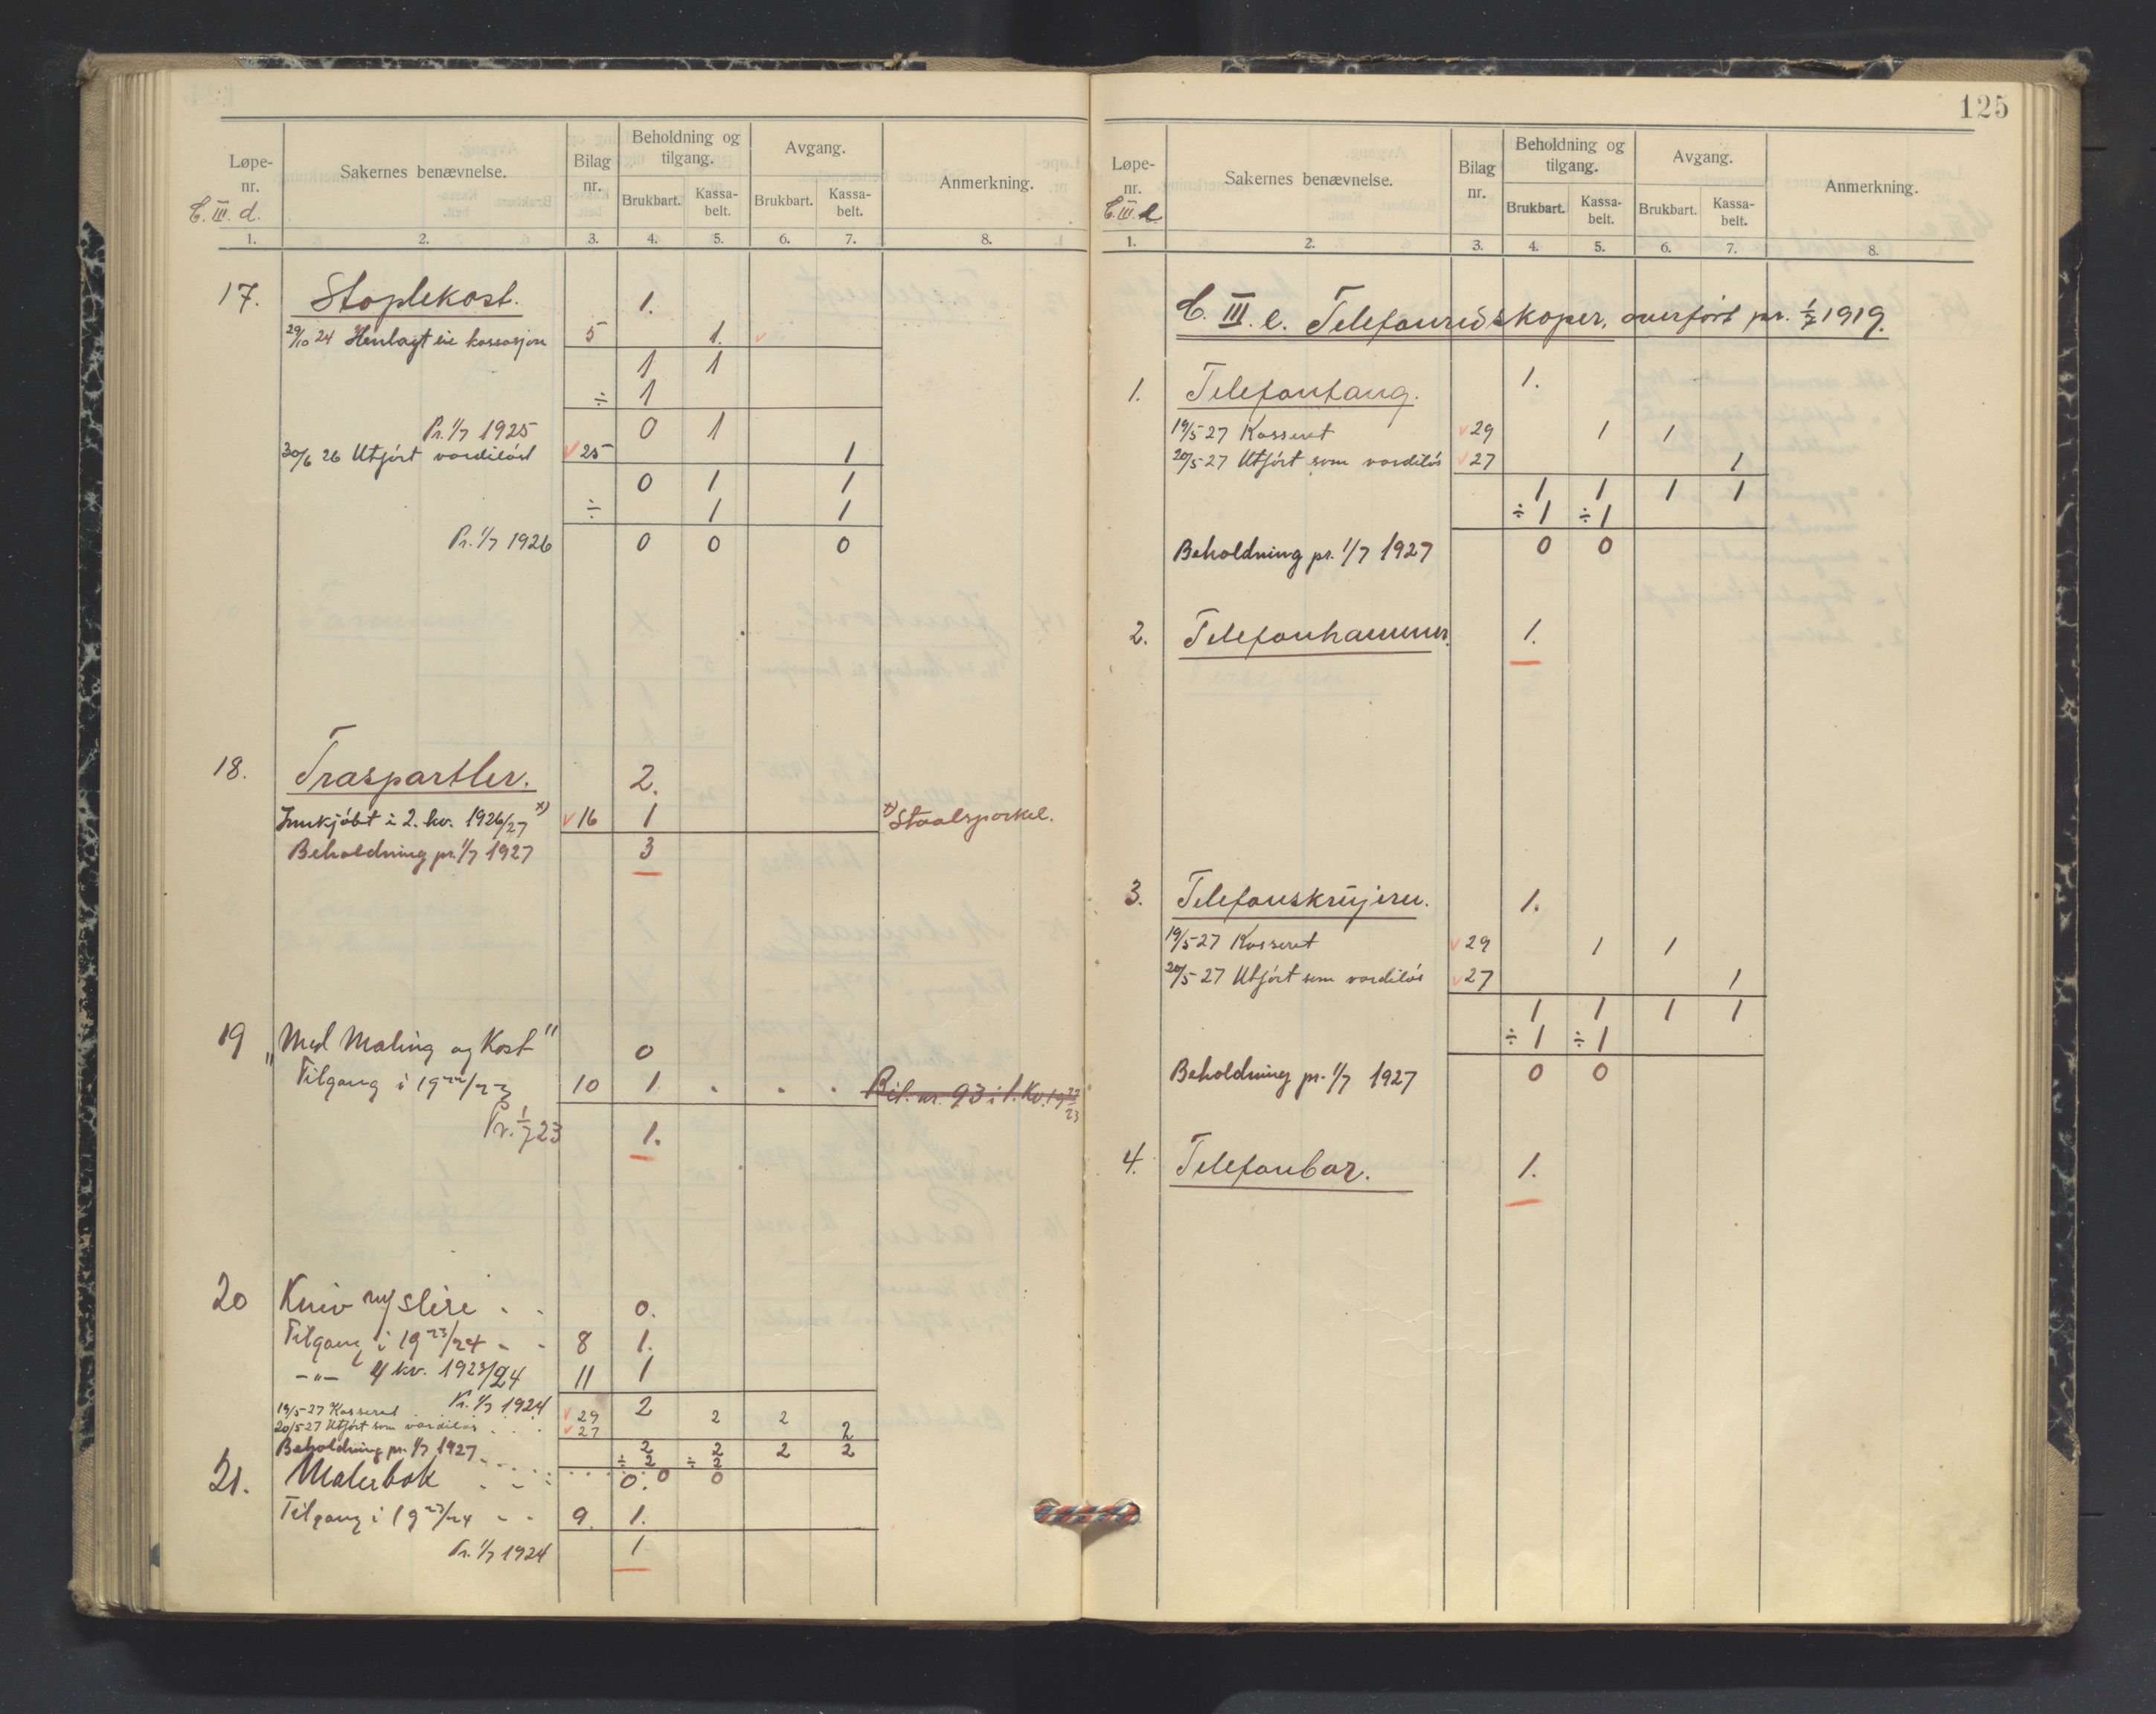 Løpe-nr.
C. III. d.
Sakernes benævnelse.
Bilag nr.
Beholdning og tilgang.
Avgang.
Anmerkning.
Brukbart. Kassa-belt. Brukbart. Kassa-belt.
1. 2. 3. 4. 5. 6. 7. 8.
17. Stoplekost. 1.
29/10 24 Henlagt til kassasjon 5 1.
1 1
÷ 1
Pr. 1/7 1925 0 1
30/6 26 Utført værdiløst 25 1
0 1 1
÷ 1 1
Pr. 1/7 1926 0 0 0
18. Traspartler. 2.
Innkjøbt i 2. kv. 1926/27 x) 16 1 x) Staalsparkel.
Beholdning pr. 1/7 1927 3
19 "Med Maling og Kost" 0
Tilgang i 1922/23 10 1 . . . Bil. nr. 93 i 1. Kv. 1922/23
Pr. 1/7 23 1.
20 Kniv m/slire . . 0.
Tilgang i 1923/24 - - 8 1.
-"- i 4 kv. 1923/24 11 1
Pr. 1/7 1924 2
19/5-27 Kasseret 29 2 2
20/5-27 Utført som værdiløs . . . 27 2
2 2 2 2
Beholdning pr. 1/7 1927 ÷ 2 ÷ 2
0 0
21. Malerbok . - - 0.
Tilgang i 1923/24 - - 9. 1.
Pr. 1/7 1924 1
125
Løpe-nr.
C. III. e.
Sakernes benævnelse.
Bilag nr.
Beholdning og tilgang.
Avgang.
Anmerkning.
Brukbart. Kassa-belt. Brukbart. Kassa-belt.
1. 2. 3. 4. 5. 6. 7. 8.
C. III. e. Telefonredskaper, overført pr. 1/7 1919.
1. Telefontang. 1.
19/5-27 Kasseret 29 1 1
20/5-27 Utført som værdiløs 27 1
1 1 1 1
÷ 1 ÷ 1
Beholdning pr. 1/7 1927 0 0
2. Telefonhammer. 1.
3. Telefonskrujern. 1.
19/5-27 Kasseret 29 1 1
20/5-27 Utført som værdiløs 27 1
1 1 1 1
÷ 1 ÷ 1
Beholdning pr. 1/7 1927 0 0
4. Telefonbor. 1.